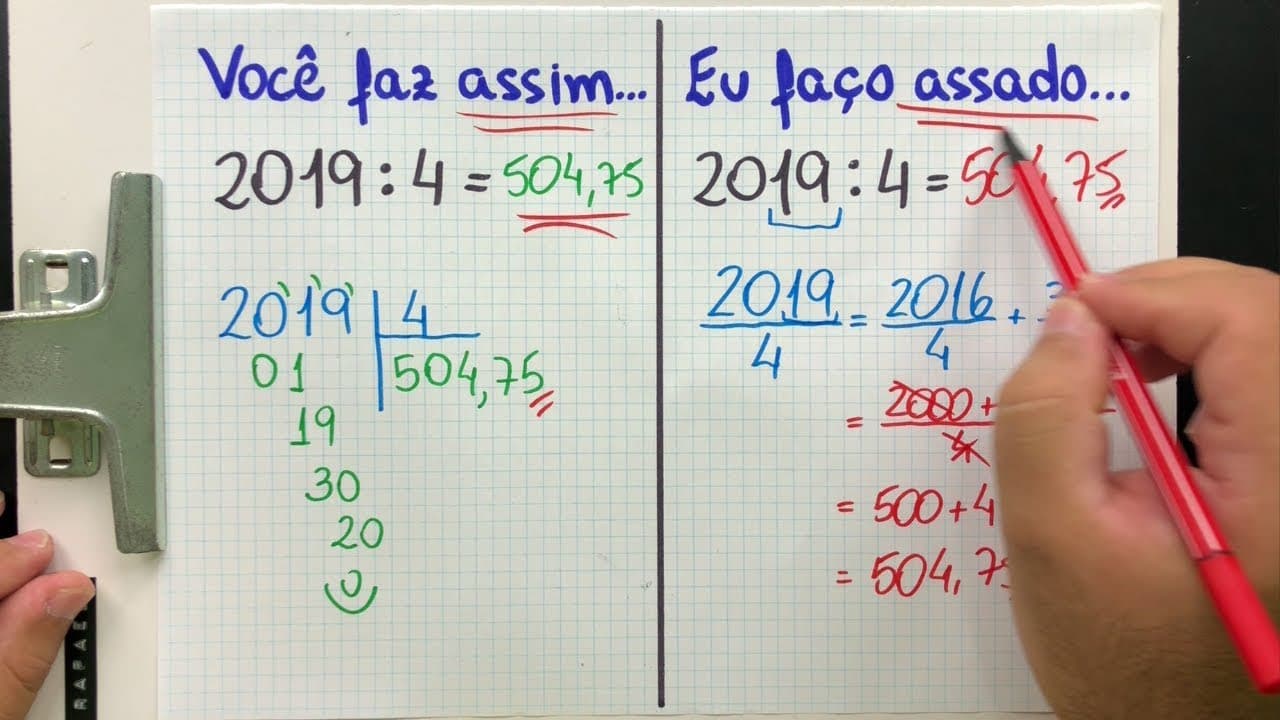 Você faz assim...
2019 : 4 = 504,75
2019 | 4
01 504,75
19
30
20
0
Eu faço assado...
2019 : 4 = 504,75
2019/4 = 2016/4 +
= 2000 +
= 500 + 4
= 504,75